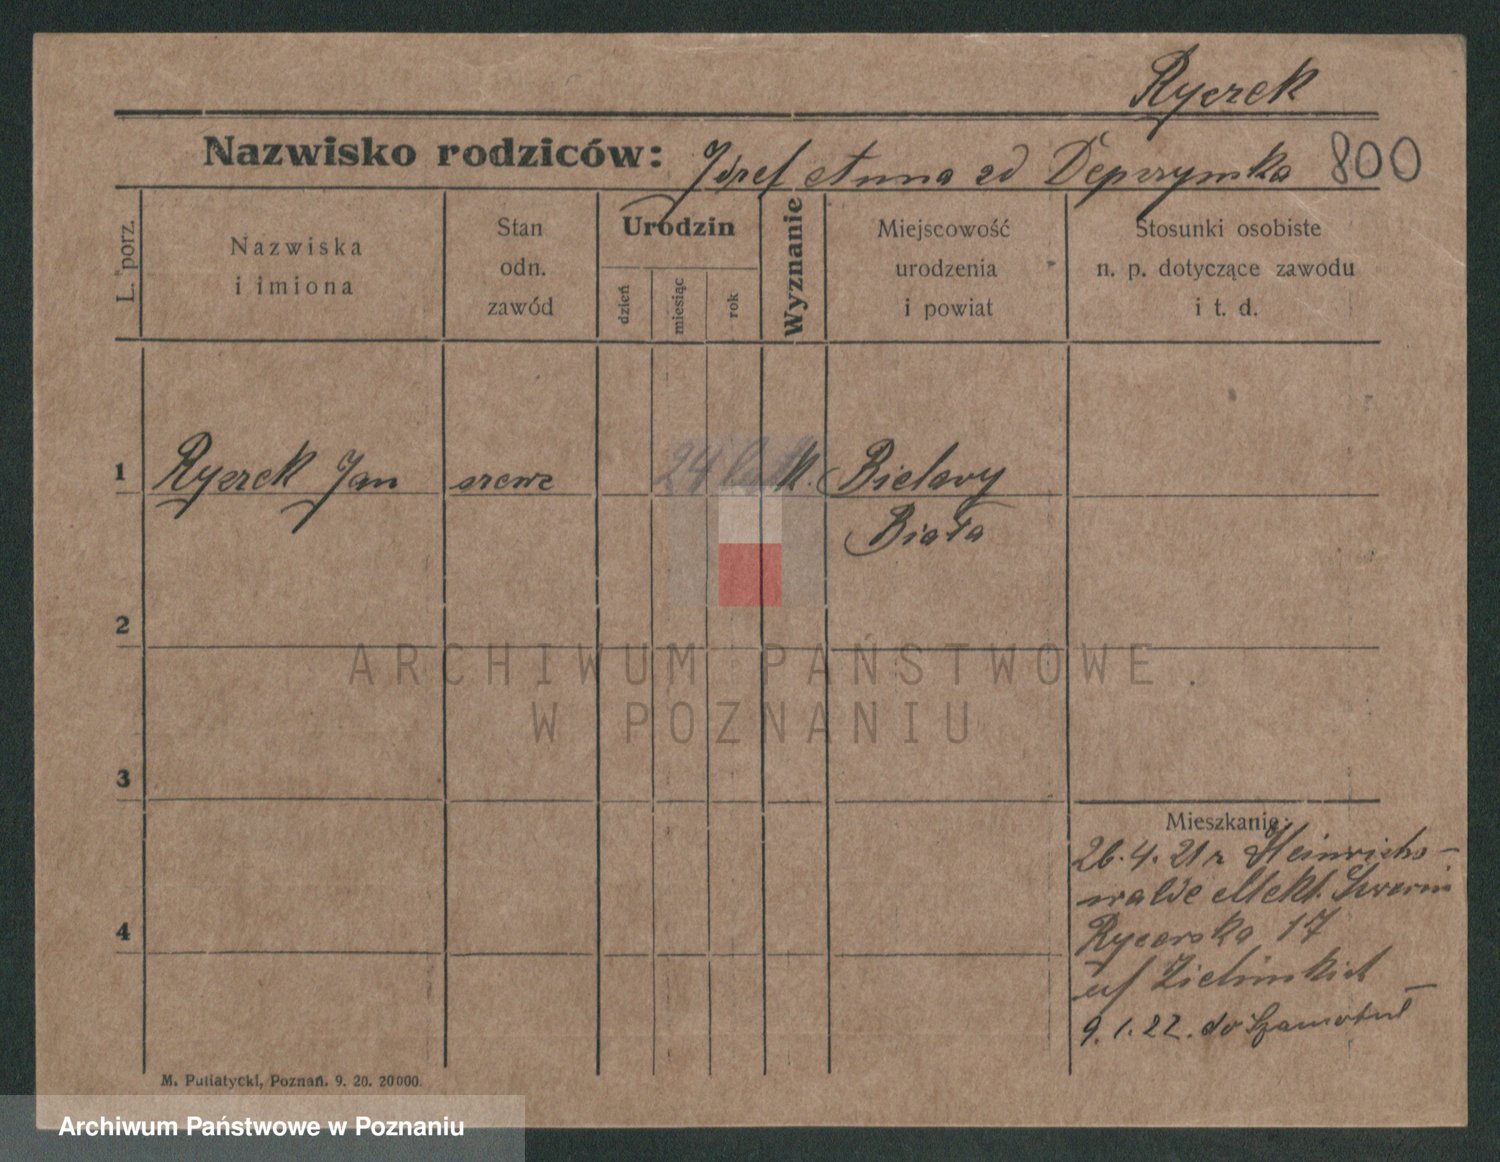 Ryczek
Nazwisko rodziców: Józef Anna zd 800
L. porz.
Nazwiska
i imiona
Stan
odn.
zawód
Urodzin
dzień
miesiąc
rok
Wyznanie
Miejscowość
urodzenia
i powiat
Stosunki osobiste
n. p. dotyczące zawodu
i t. d.
1 Ryczek Jan szewc 24 lat k. Bielawy
Biała
2
ARCHIWUM PAŃSTWOWE
W POZNANIU
3
Mieszkanie:
26.4.21 r Heinrichs-
walde Mekl. Szwerin
4
Rycerska 17
9.1.22. do Szamotuł
M. Putiatycki, Poznań. 9. 20. 20000.
Archiwum Państwowe w Poznaniu